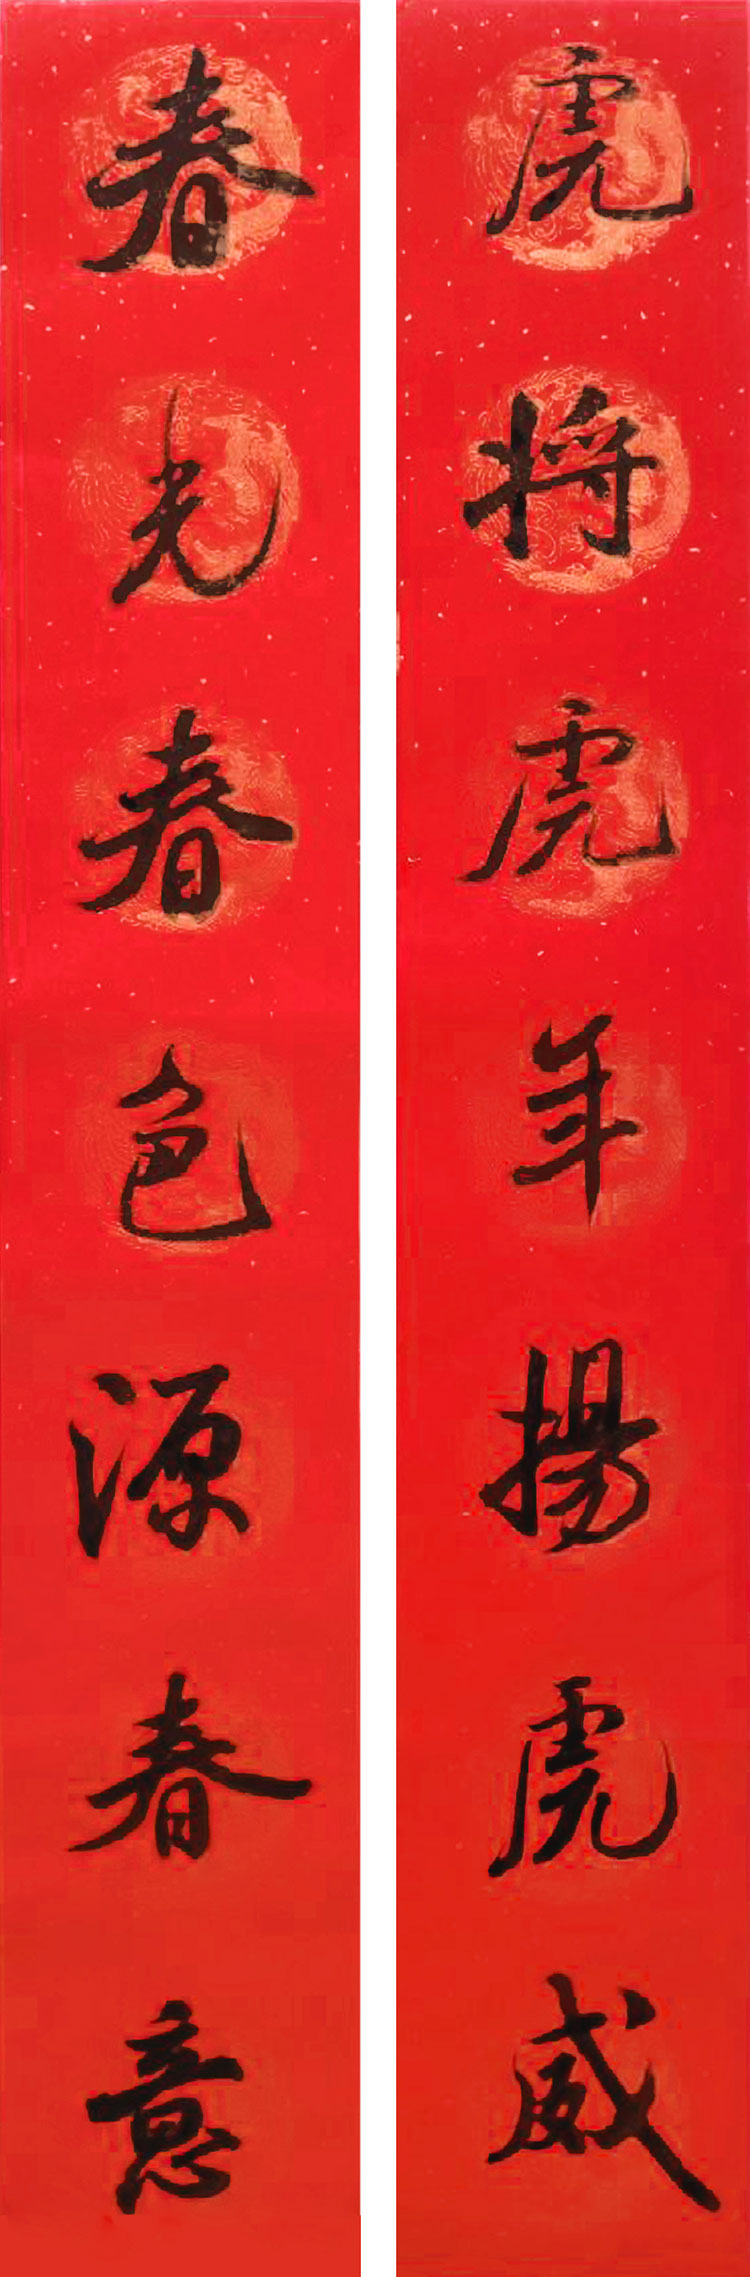 虎将虎年揚虎威
春光春色源春意